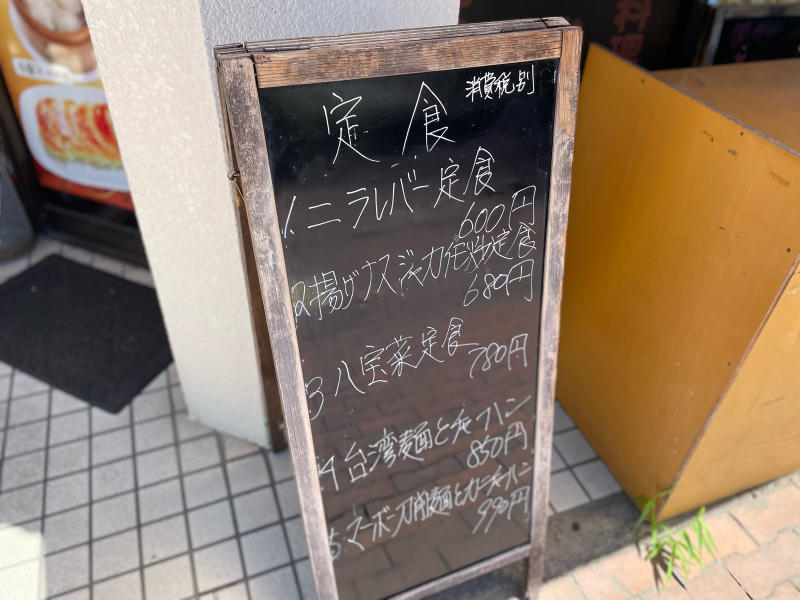 料理
消費税別
定食
1. ニラレバー定食
600円
2 揚げナスジャガ任炒定食
680円
3 八宝菜定食
780円
4 台湾麺とチャーハン
850円
5. マーボー刀削麺とカニチャーハン
990円